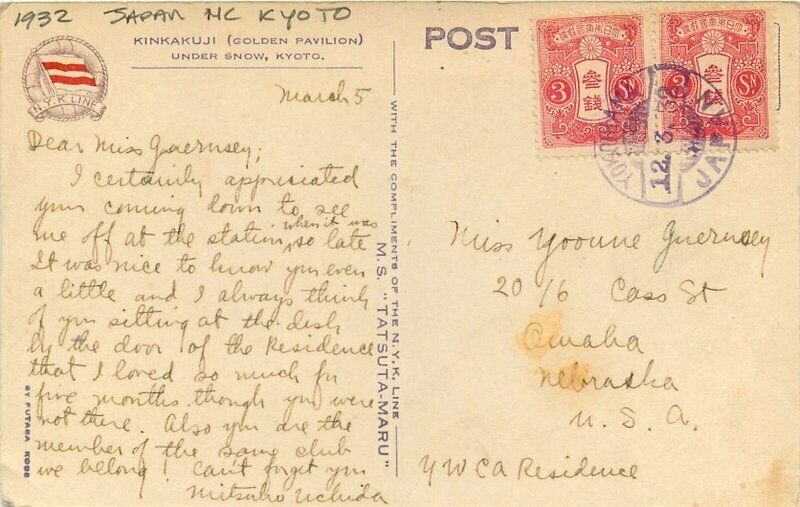 1932 JAPAN NC KYOTO
KINKAKUJI (GOLDEN PAVILION)
UNDER SNOW, KYOTO.
N.Y.K LINE
March 5
Dear Miss Guernsey;
I certainly appriciated
your coming down to see
me off at the station, when it was so late
It was nice to know you even
a little and I always think
of you sitting at the desk
by the door of the Residence
that I loved so much for
five months though you were
not there. Also you are the
member of the same club
we belong! Can't forget you
Mitsuko Uchida
BY FUTABA KOBE
WITH THE COMPLIMENTS OF THE N.Y.K. LINE
M.S. "TATSUTA-MARU"
POST
3 参銭 SN
3 参銭 SN
12.3.32
JAPAN
Miss Yvonne Guernsey
2016 Cass St
Omaha
Nebraska
U.S.A.
YWCA Residence